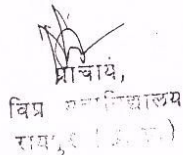 प्राचार्य,
विप्र महाविद्यालय
रायपुर (छ. ग.)